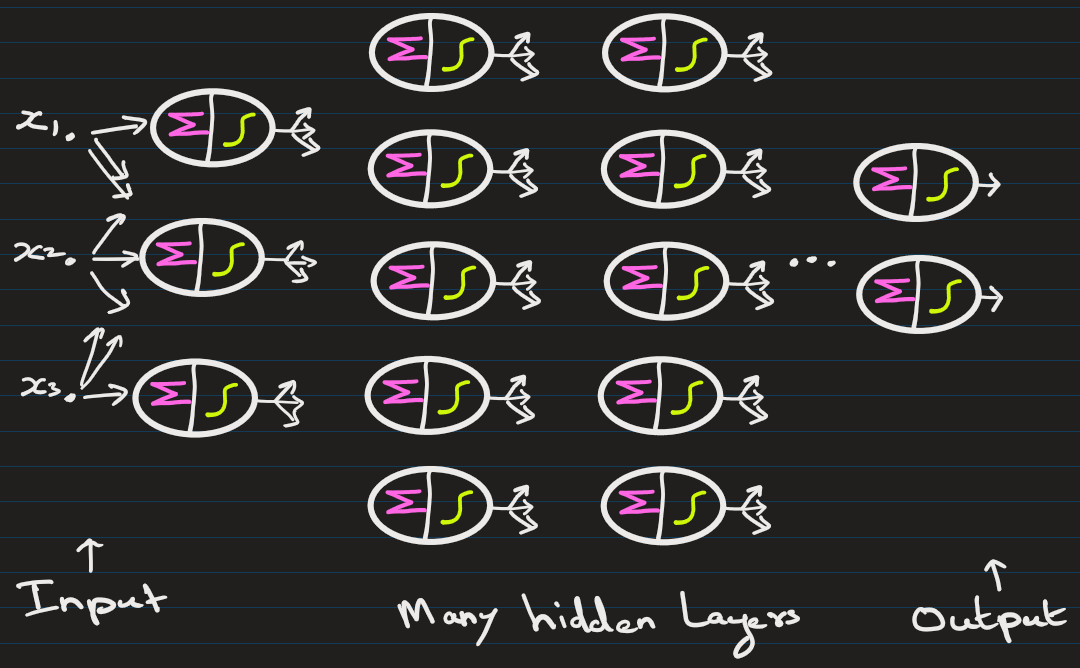 x1.
x2.
x3.
Σ ∫
Σ ∫
Σ ∫
Σ ∫
Σ ∫
Σ ∫
Σ ∫
Σ ∫
Σ ∫
Σ ∫
Σ ∫
Σ ∫
Σ ∫
...
Σ ∫
Σ ∫
Input
Many hidden Layers
Output